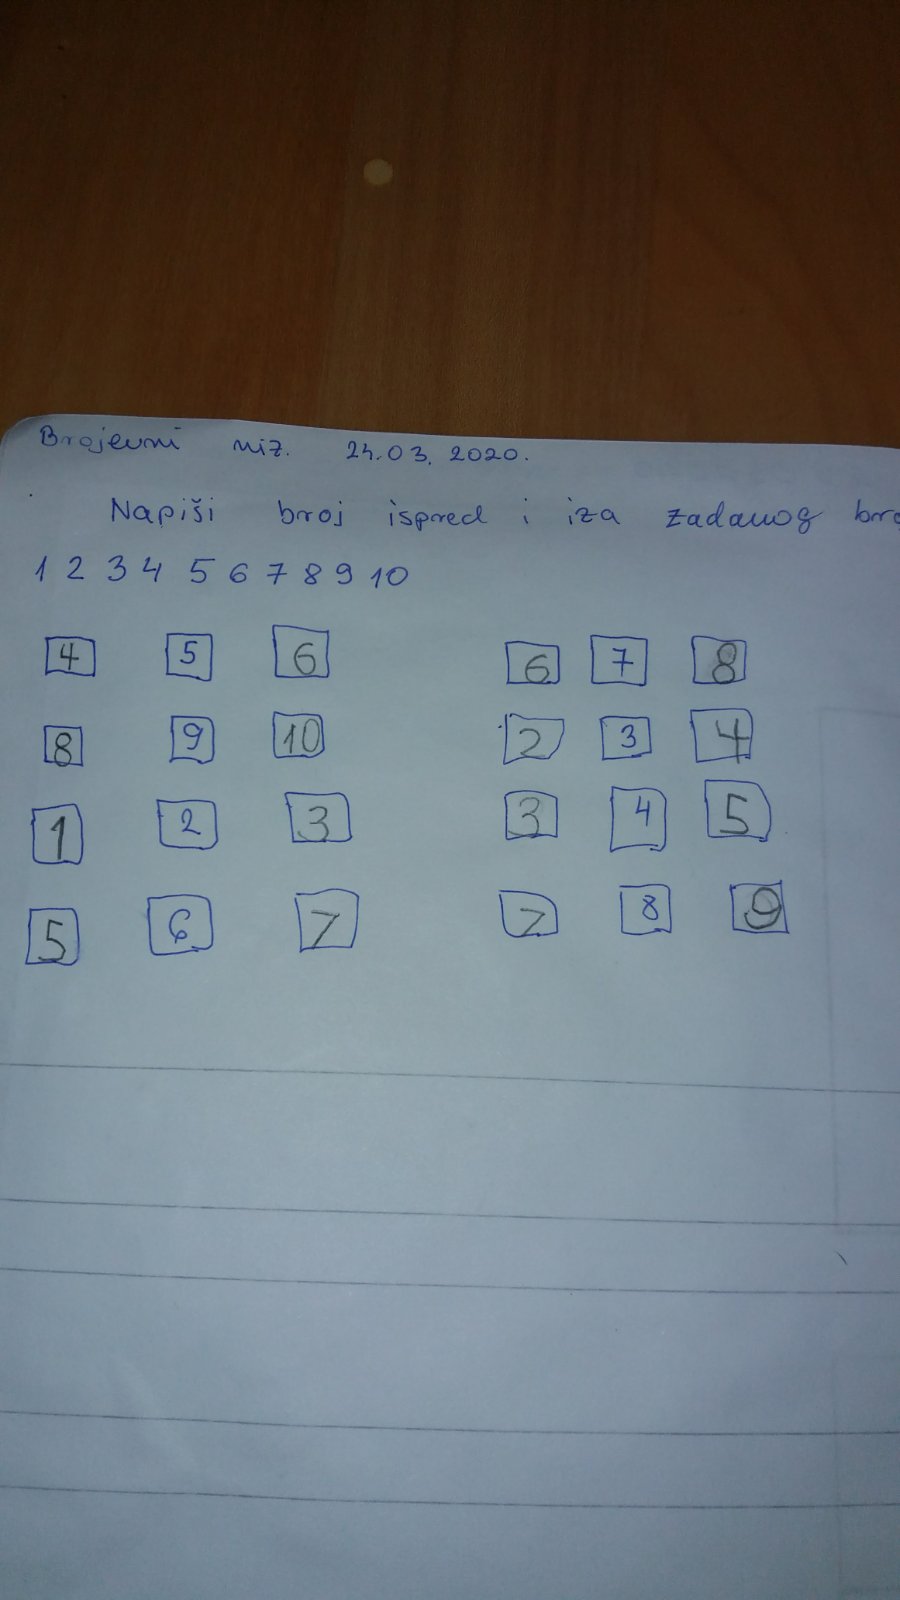 Brojevni niz. 24.03.2020.
Napiši broj ispred i iza zadanog
1 2 3 4 5 6 7 8 9 10
4 5 6 6 7 8
8 9 10 2 3 4
1 2 3 3 4 5
5 6 7 7 8 9